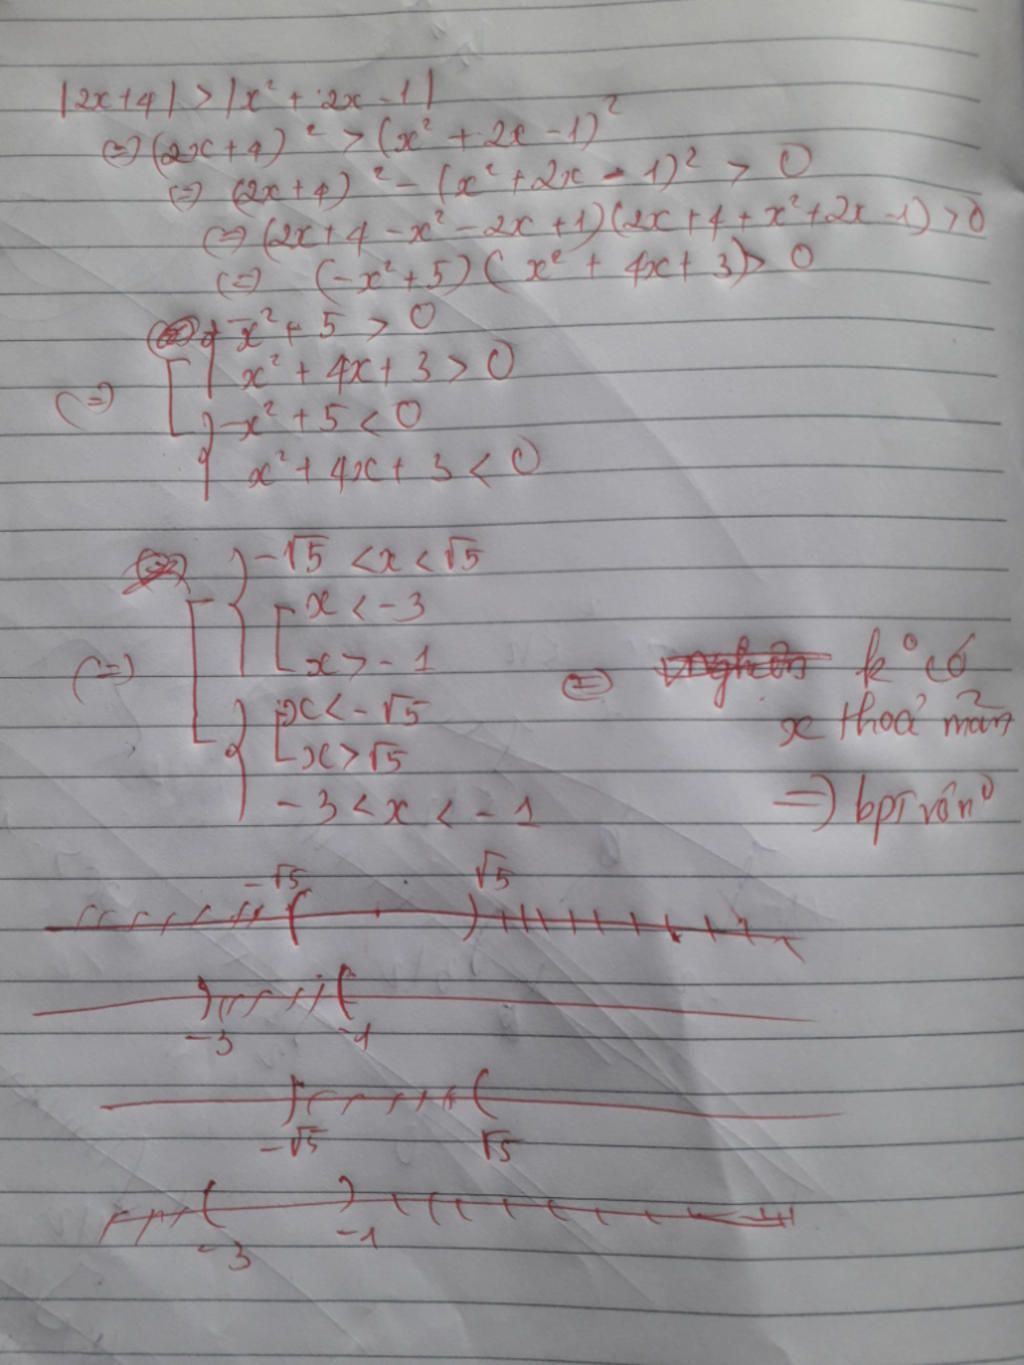 |2x+4| > |x² + 2x - 1|
⇔ (2x+4)² > (x² + 2x - 1)²
⇔ (2x+4)² - (x² + 2x - 1)² > 0
⇔ (2x+4 - x² - 2x + 1)(2x + 4 + x² + 2x - 1) > 0
⇔ (-x² + 5)(x² + 4x + 3) > 0
-x² + 5 > 0
x² + 4x + 3 > 0
⇔
-x² + 5 < 0
x² + 4x + 3 < 0
-√5 < x < √5
x < -3
x > -1
⇔
x < -√5
x > √5
-3 < x < -1
⇔ k° có
x thoả mãn
⇒ bpt vô n⁰
-√5 √5
-3 -1
-√5 √5
-3 -1